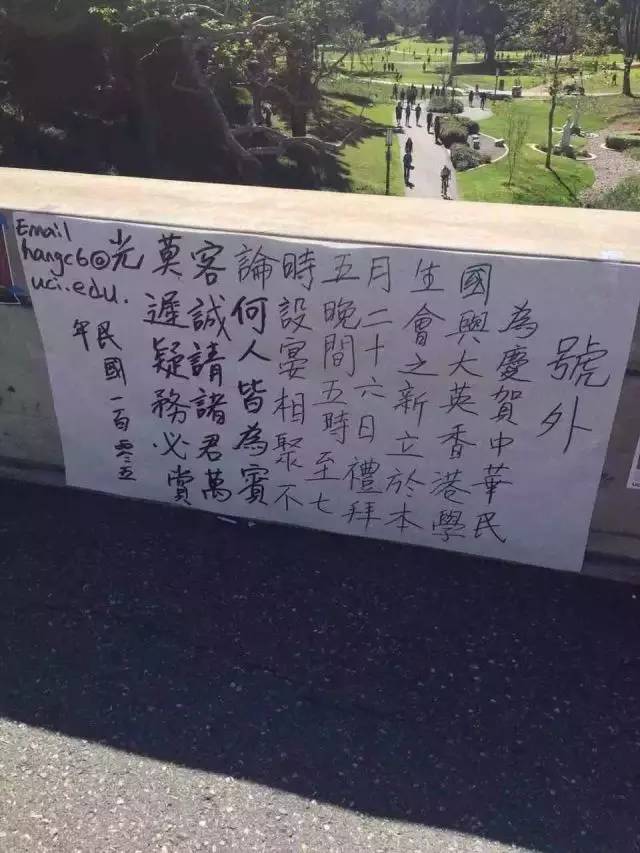 號外
為慶賀中華民
國興大英香港學
生會之新立於本
月二十六日禮拜
五晚間五時至七
時設宴相聚不
論何人皆為賓
客誠請諸君萬
莫遲疑務必賞
光
民國一百零五
年
Email
hangc6@
uci.edu.